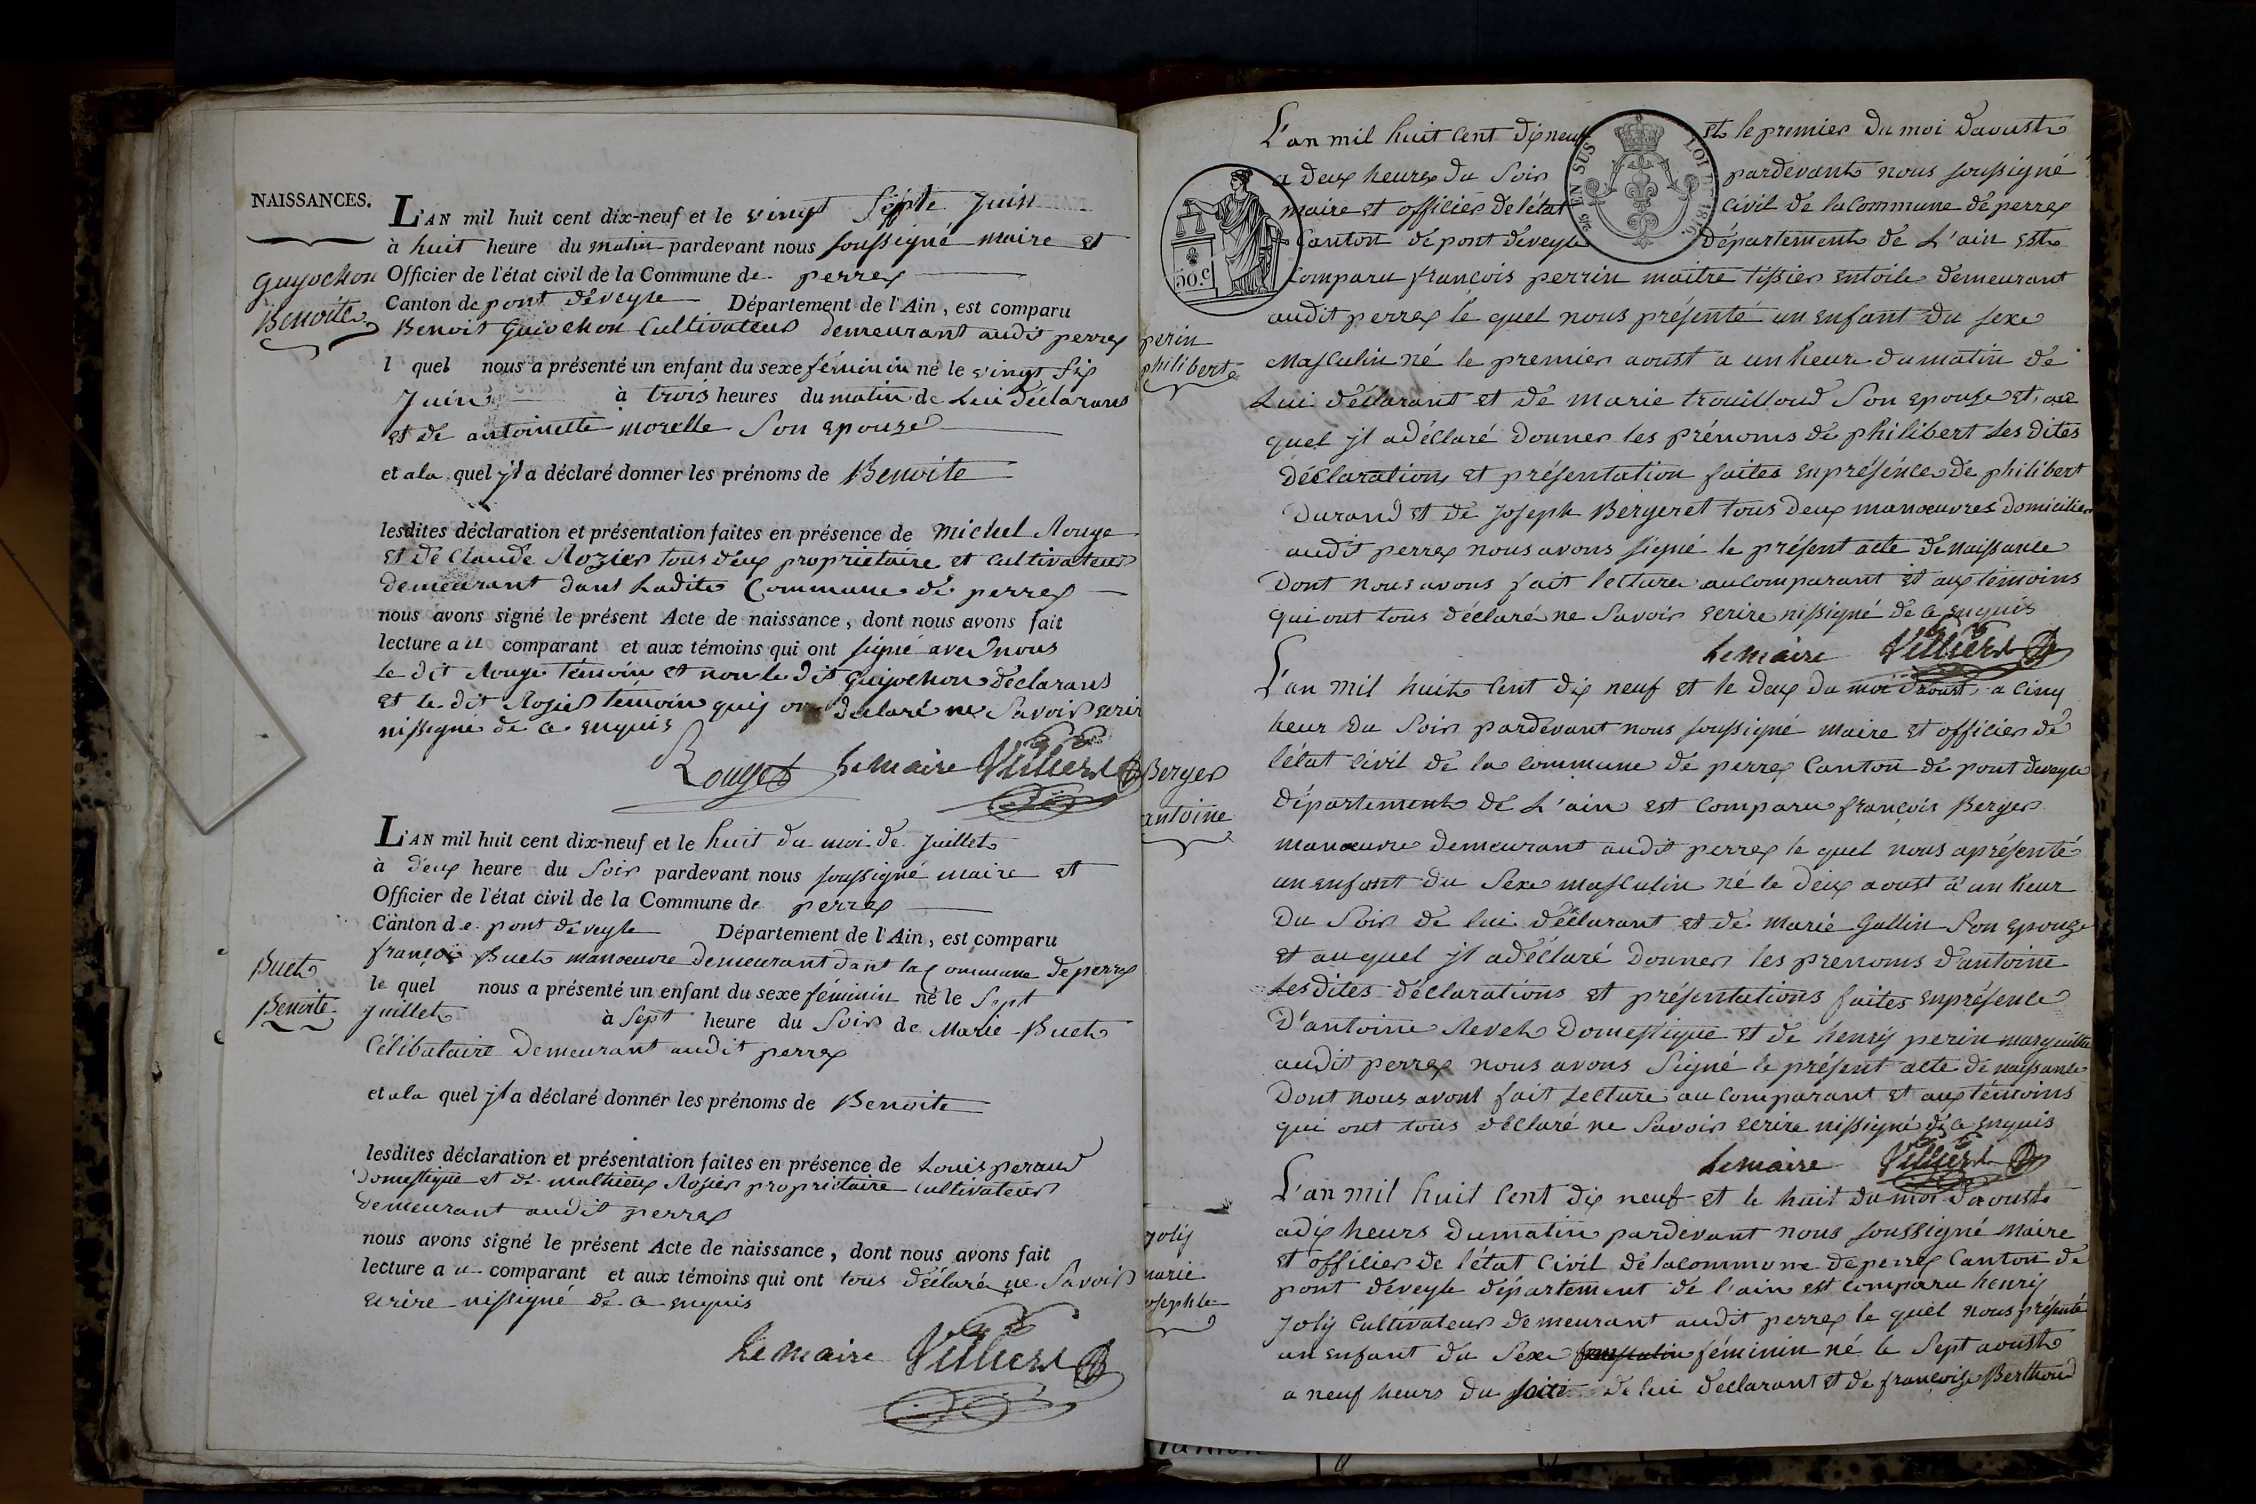 NAISSANCES.
L'AN mil huit cent dix-neuf et le vingt Septe Juin
à huit heure du matin pardevant nous soussigné maire et
Officier de l'état civil de la Commune de perrex
Canton de pont deveyle Département de l'Ain, est comparu
Benoit Guivchon Cultivateur demeurant audit perrex
l quel nous a présenté un enfant du sexe féminin né le vingt six
Juin à trois heures du matin de Lui déclarant
et de antoinette morelle Son epouze
et a la quel jl a déclaré donner les prénoms de Benoite
lesdites déclaration et présentation faites en présence de michel Rouge
et de Claude Rozier tous deux proprietaire et Cultivateur
demeurant dans Ladite Commune de perrex
nous avons signé le présent Acte de naissance, dont nous avons fait
lecture a u comparant et aux témoins qui ont signé avec nous
Le dit Rouge témoin et non le dit guyochon déclarant
et le dit Rosier temoin quij on declaré ne Savoir ecrir
nissigné de ce enquis
Rouget Le maire Villierd
guyochon
Benoite
L'AN mil huit cent dix-neuf et le huit du moi de Juillet
à deux heure du Soir pardevant nous soussigné maire et
Officier de l'état civil de la Commune de perrex
Canton de pont de veyle Département de l'Ain, est comparu
françois Buet manoeuvre demeurant dant la Commune de perrex
le quel nous a présenté un enfant du sexe féminin né le Sept
Juillet à Sept heure du Soir de Marie Buet
Célibataire Demeurant audit perrex
et a la quel jl a déclaré donner les prénoms de Benoite
lesdites déclaration et présentation faites en présence de Louis peraud
Domestique et de mathieux Rosier proprietaire Cultivateur
demeurant audit perrex
nous avons signé le présent Acte de naissance, dont nous avons fait
lecture a u comparant et aux témoins qui ont tous déclaré ne Savoir
ecrire nissigné de ce enquis
Le maire Villierd
Buet
Benoite
L'an mil huit Cent dix neuf et le premier du moi d'aoust
a deux heures du Soir pardevant nous soussigné
maire et officier de l'état civil de la Commune de perrex
Canton de pont deveyle département de L'ain est
Comparu françois perrin maitre tissier entoile demeurant
audit perrex le quel nous présenté un enfant du sexe
Masculin né le premier aoust a un heure du matin de
Lui déclarant et de marie trouilloud Son epouze et au
quel jl a déclaré donner les prénoms de philibert Les dites
déclarations et présentation faites en présence de philibert
durand et de Joseph Bergeret tous deux manoeuvres domicilier
audit perrex nous avons signé le présent acte de naissance
Dont nous avons fait lecture au comparant et aux témoins
qui ont tous déclaré ne Savoir ecrire nissigné de ce enquis
Le maire Villierd
perin
philibert
EN SUS
LOI DE 1816.
50.c
L'an mil huit Cent dix neuf et le deux du moi d'aoust a cinq
heur du Soir pardevant nous soussigné maire et officier de
l'état Civil de la commune de perrex Canton de pont deveyle
département de L'ain est Comparu françois Berger
manoeuvre demeurant audit perrex le quel nous a présenté
un enfant du Sexe masculin né le deux aoust a un heur
du Soir de lui déclarant et de Marie Gallin Son epouze
et au quel jl a déclaré Donner les prenoms d'antoine
Les dites déclarations et présentations faites en présence
D'antoine Revet Domestique et de henrij perin marguillier
audit perrex nous avons Signé le présent acte de naissance
Dont nous avont fait Lecture au Comparant et aux témoins
qui ont tous déclaré ne Savoir ecrire nissigné de ce enquis
Le maire Villierd
Berger
antoine
L'an mil huit Cent dix neuf et le huit du moi d'aoust
a dix heurs du matin pardevant nous soussigné Maire
et officier de l'état Civil de la commune de perrex Canton de
pont deveyle département de l'ain est comparu henrij
Jolij Cultivateur demeurant audit perrex le quel nous présenté
un enfant du Sexe masculin féminin né le Sept aoust
a neuf heurs du soir de lui declarant et de françoise Berthoud
Jolij
marie
osephte